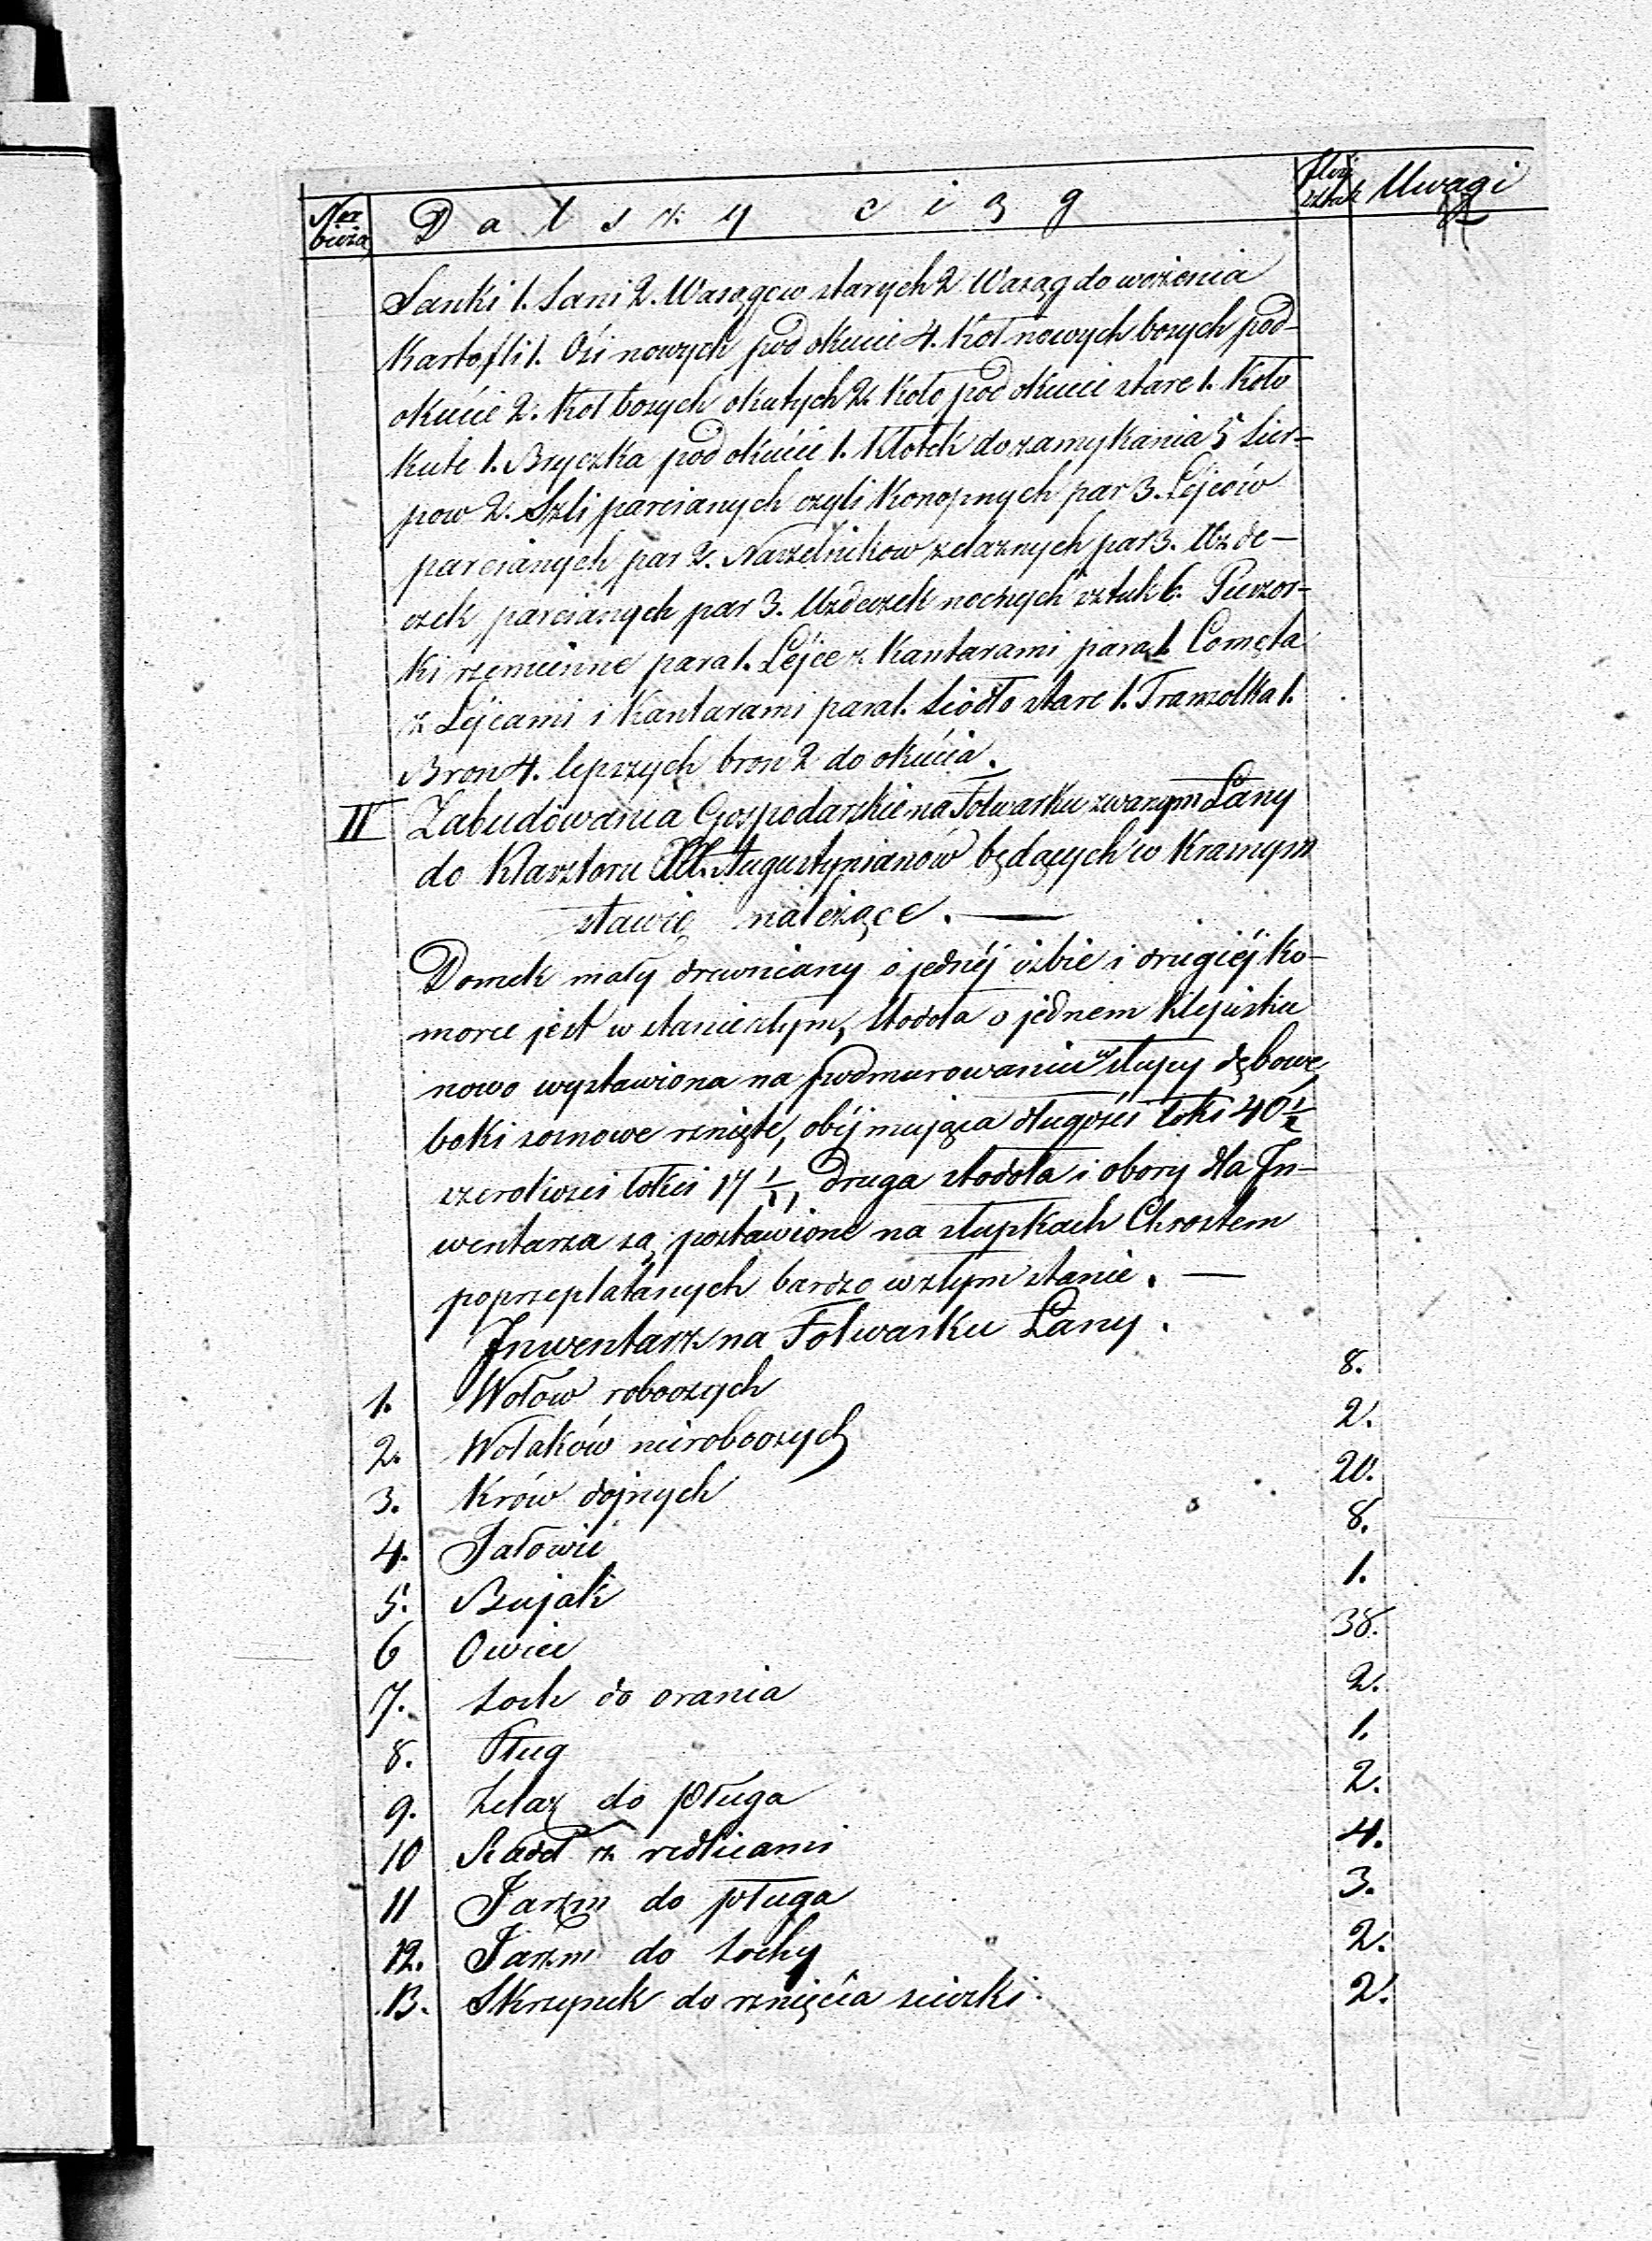 Ner bieżą Dalszy ciąg Ilość sztuk Uwagi
Sanki 1. Sani 2. Wasągow starych 2 Wasąg do wożenia
Kartofli 1. Osi nowych pod okucie 4. Kół nowych bosych pod-
okucie 2. Kół bosych okutych 2. Koło pod okucie stare 1. Koło
kute 1. Bryczka pod okucie 1. Kłotek do zamykania 5 Sier-
pow 2. Szli parcianych czyli Konopnych par 3. Léjców
parcianych par 2. Naszelnikow żelaznych par 3. Uzde-
czek parcianych par 3. Uzdeczek nocnych sztuk 6.
ki rzemienne para 1. Léjce z Kantarami para 1. Comęta
z Léjcami i Kantarami para 1. Siodło stare 1. Tranzolka 1.
Bron 4. lepszych bron 2 do okucia.
II Zabudowania Gospodarskie na Folwarku zwanym Łany
do Klasztoru XX. Augustynianów będących w Krasnym
stawie należące. —
Domek mały drewniany o jednéj izbie i drugiéj ko-
morce jest w stanie złym, stodoła o jednem klepisku
nowo wystawiona na podmurowaniu w słupy dębowe
boki sosnowe rznięte, obéjmująca długości łokci 40 ½
szerokości łokci 17 ½, Druga stodoła i obory dla In-
wentarza są postawione na słupkach Chrostem
poprzeplatanych bardzo w złym stanie. —
Inwentarz na Folwarku Łany.
1. Wołow roboczych 8.
2. Wołaków nieroboczych 2.
3. Krów dojnych 20.
4. Jałowic 8.
5. Bujak 1.
6 Owiec 38.
7. Soch do orania 2.
8. Pług 1.
9. Żelaz do pługa 2.
10 Radeł z redlicami 4.
11 Jarzm do pługa 3.
12. Jarzm do sochy 2.
13. Skrzynek do rznięcia sieczki 2.